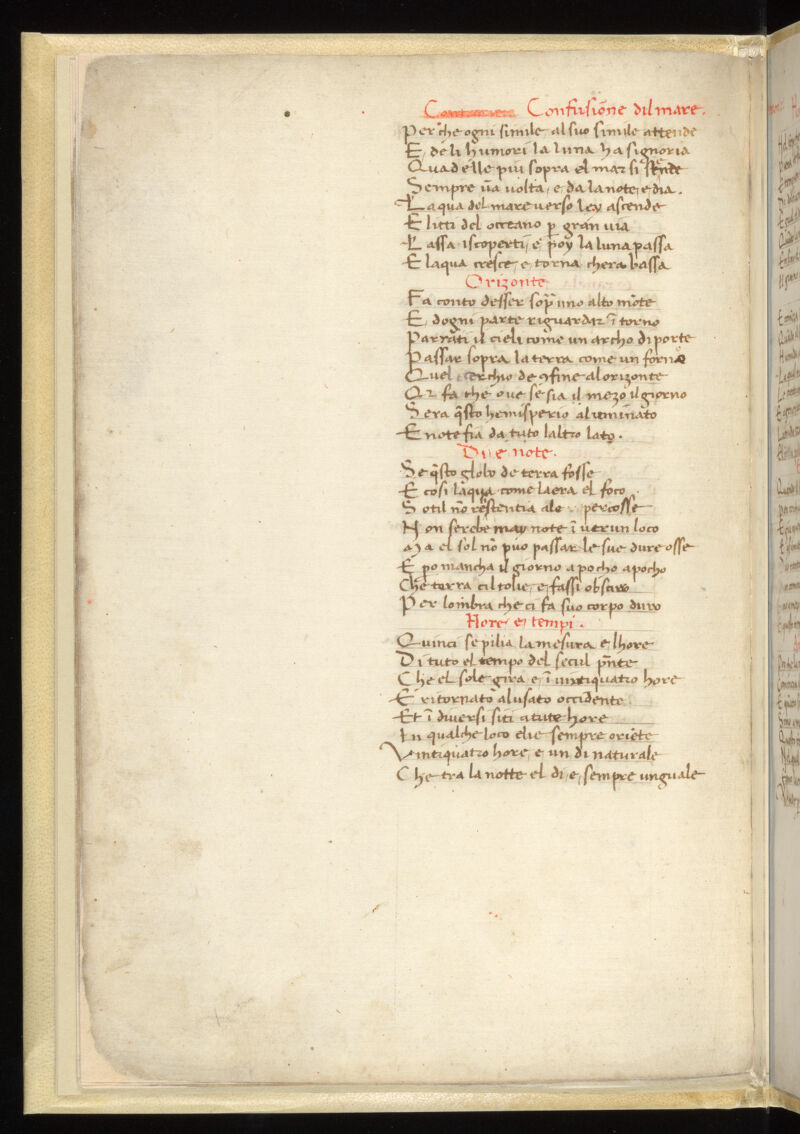 Confusiōne dil mare.
Per che ogni simile al suo simile attende
E, de li humori la luna ha signoria
Quad elle piu sopra el mar si stēnde
Sempre ūa uolta, e, da la note, e dia.
Laqua del mare uerso ley ascende
E litti del occeano p gran uia
Lassa iscoperti, e poy la luna passa
E laqua cresce, e torna chera bassa
Orizonte
Fa conto desser sop̄ uno alto mōte
E, dogni parte riguardar ī torno
Parrati il cieli come un archo di ponte
Passar sopra la terra come un forno
Quel cerchio de 9fine al orizonte
Or fa che oue se sia il mezo il giorno
Sera q̄sto hemisperio aluminato
E note fia da tuto laltro lato.
Due note.
Se q̄sto globo de terra fosse
E cosi laqua come laera el foco
Sotil nō restentia ale percosse
Non serebe may note ī uerun loco
Ma el sol nō puo passar le sue dure osse
E po mancha il giorno apocho apocho
Che terra cil tolie, e, fassi obscuro
Per lombra che ci fa suo corpo duro
Hore et tempi.
Quinci se pilia la mesura e lhore
Di tuto el tempo del secul p̄nte
Che el sole gira e ī uintiquatro hore
E ritornato alusato occidente
Et ī diuersi siti a tute hore
In qualche loco elie sempre oriēte
Vintiquatro hore, e un di naturale
Che tra la notte el di, e, sempre unguale